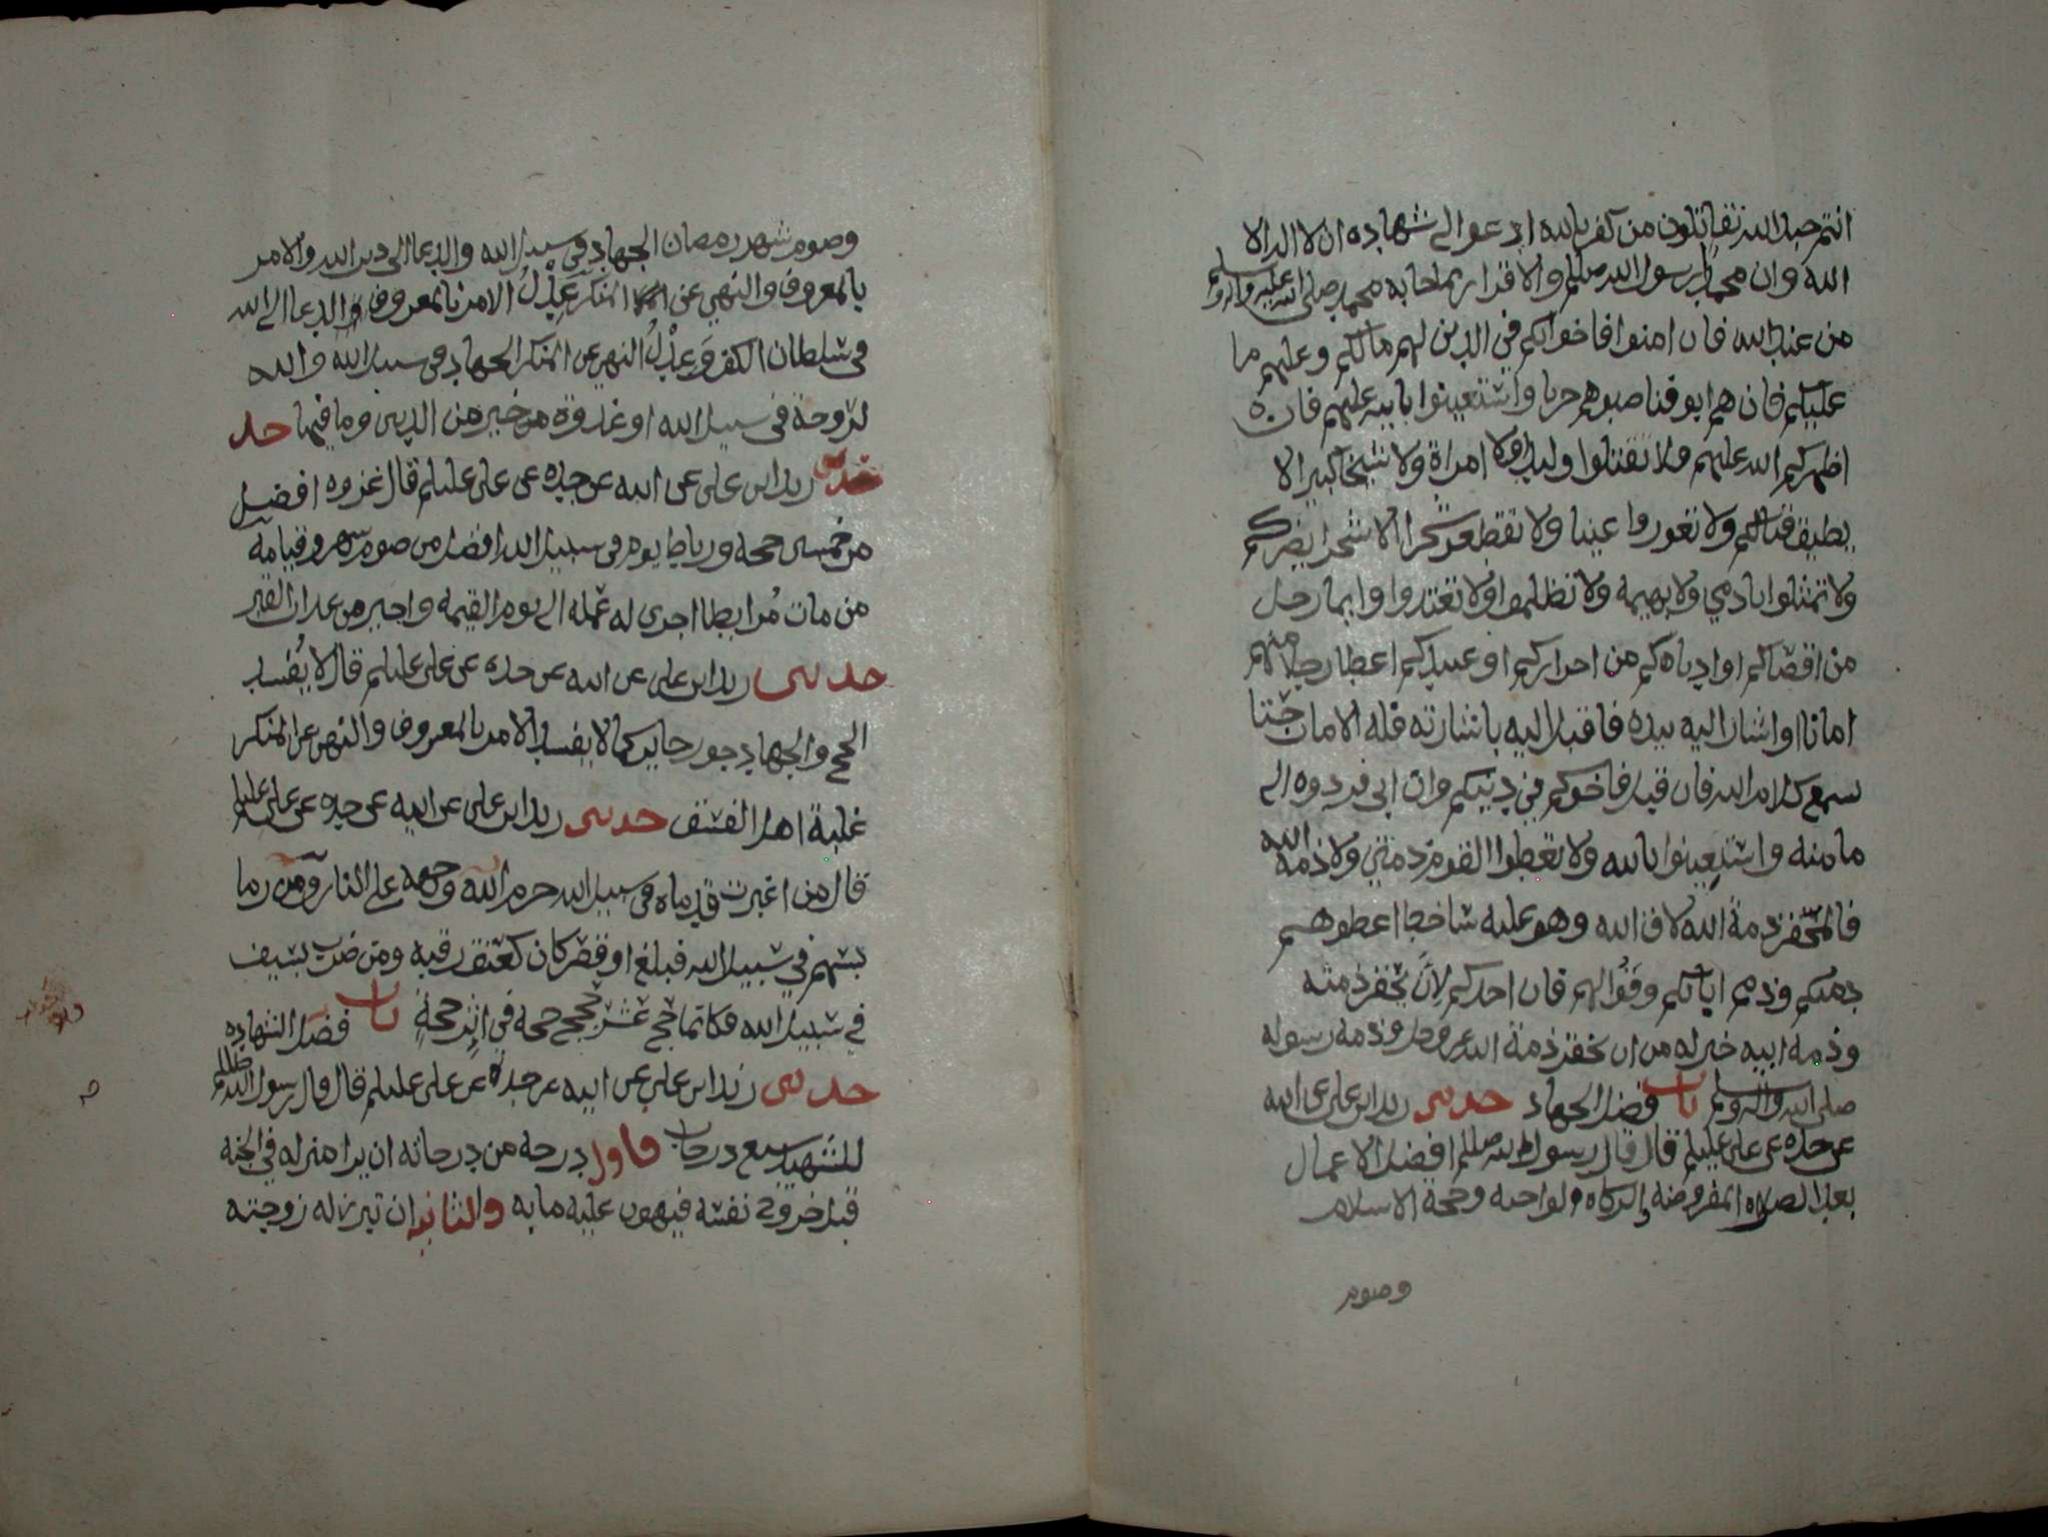 انتم جند الله تقاتلون من كفر بالله ادعوا الى شهادة ان لا اله الا
الله وان محمدا رسول الله صللم والاقرار بما جا به محمد صلى الله عليه واله وسلم
من عند الله فان امنوا فاخوانكم في الدين لهم مالكم وعليهم ما
عليكم فان هم ابو فناصبوهم حربا واستعينوا بالله عليهم فان
اظهركم الله عليهم فلا تقتلوا وليدا ولا امراة ولا شيخا كبيرا لا
يطيق قتالكم ولا تعوروا عينا ولا تقطعو شجرا الا شجرا يضركم
ولا تمثلوا بادمي ولا بهيمة ولا تظلموا ولا تعتدوا وايما رجل
من اقصاكم او ادناكم من احراركم او عبيدكم اعطا رجلا منهم
امانا او اشار اليه بيده فاقبل اليه باشارته فله الامان حتا
سمع كلام الله فان قبل فاخوكم في دينكم وان ابى فردوه الى
مامنه واستعينوا بالله ولا تعطوا القوم ذمتي ولا ذمة الله
فالمخفر ذمة الله لاق الله وهو عليه ساخط اعطوهم
ذمتكم وذمم ابائكم وفوا لهم فان احدكم لان يخفر ذمته
وذمة ابيه خير له من ان يخفر ذمة الله عز وجل وذمة رسوله
صلى الله واله وسلم باب فضل الجهاد حدثني زيد ابن علي عن ابيه
عن جده عن علي عليلم قال قال رسول الله صللم افضل الاعمال
بعد الصلاه المفروضة والزكاه الواجبه وحجة الاسلام
وصوم
وصوم شهر رمضان الجهاد في سبيل الله والدعا الى دين الله والامر
بالمعروف والنهي عن المنكر عدل الامر بالمعروف والدعا الى الله
في سلطان الكفر وعدل النهي عن المنكر الجهاد في سبيل الله والله
لروحة في سبيل الله او غدوة خير من الدنيا وما فيها حد
حدثني زيد ابن علي عن ابيه عن جده عن علي عليلم قال غزوه افضل
من خمسين حجة ورباط يوم في سبيل الله افضل من صوم شهر وقيامه
من مات مرابطا اجري له عمله الى يوم القيمة واجير من عذاب القبر
حدثني زيد ابن علي عن ابيه عن جده عن علي عليلم قال لا يفسد
الحج والجهاد جور جاير كما لا يفسد الامر بالمعروف والنهي عن المنكر
غلبة اهل الفسق حدثني زيد ابن علي عن ابيه عن جده عن علي عليلم
قال من اغبرت قدماه في سبيل الله حرم الله وجهه على النار ومن رما
بسهم في سبيل الله فبلغ او قصر كان كعتق رقبه ومن ضرب بسيف
في سبيل الله فكانما حج عشر حجج حجة في اثر حجة باب فضل الشهاده
حدثني زيد ابن علي عن ابيه عن جده عن علي عليلم قال قال رسول الله صللم
للشهيد سبع درجات فاول درجة من درجاته ان يرا منزله في الجنة
قبل خروج نفسه فيهون عليه ما به والثانيه ان تبرز له زوجته